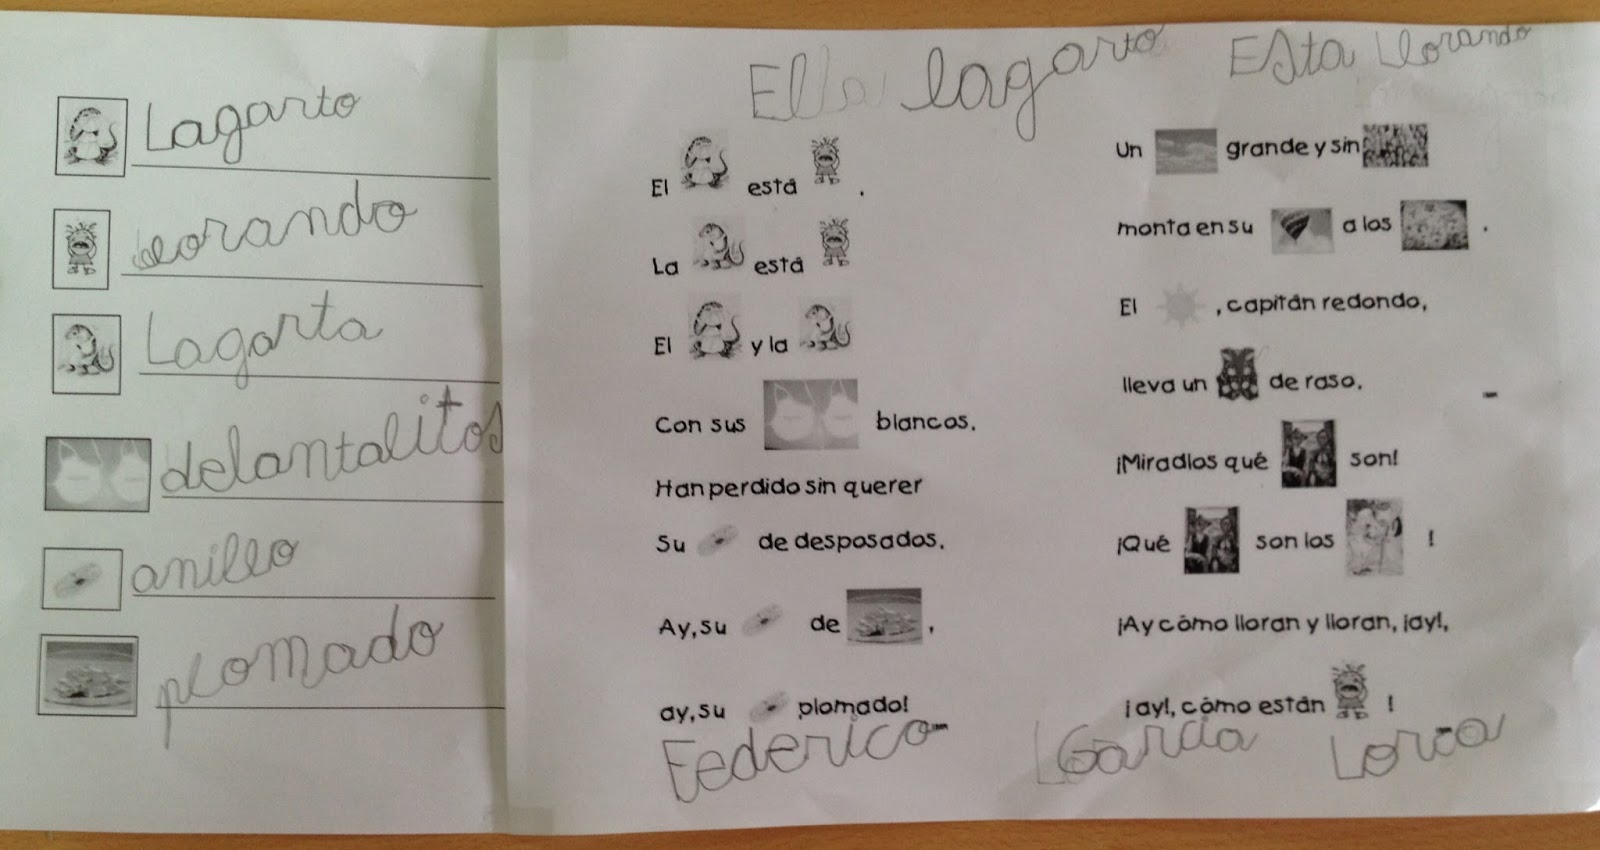 Lagarto
llorando
Lagarta
delantalitos
anillo
plomado
Ella lagarto Esta Llorando
El está .
La está
El y la
Con sus blancos.
Han perdido sin querer
Su de desposados.
Ay, su de ,
ay, su plomado!
Un grande y sin
monta en su a los .
El , capitán redondo,
lleva un de raso.
¡Miradlos qué son!
¡Qué son los !
¡Ay cómo lloran y lloran, ¡ay!,
¡ay!, cómo están !
Federico García Lorca